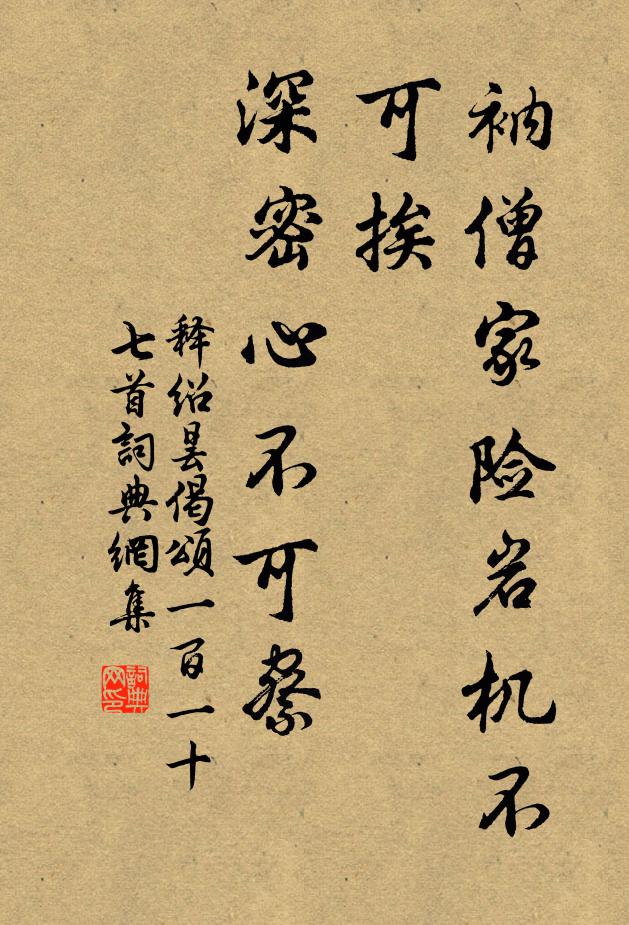 衲僧家险岩机不
可挨
深密心不可察
释绍昙偈頌一百一十
七首詞典網集
詞典网印